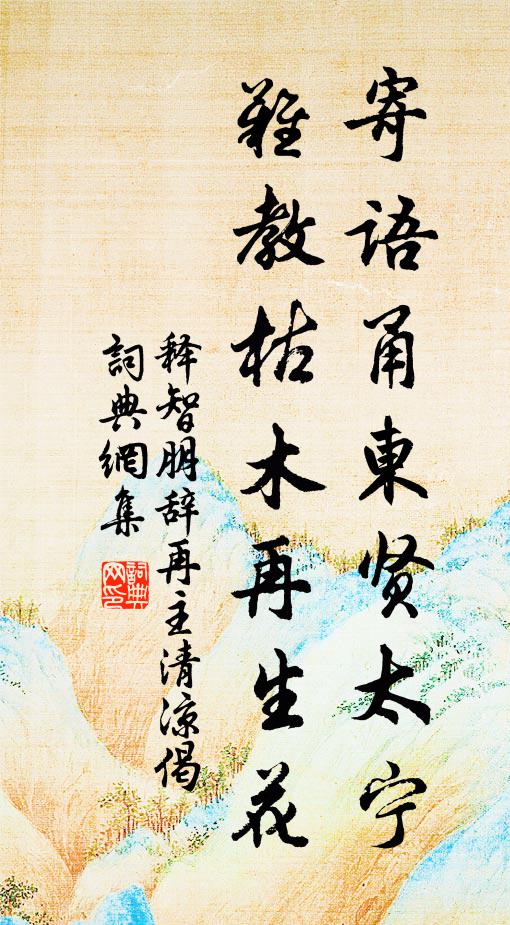 寄语甬東贤太宁
難教枯木再生花
释智朋辞再主清凉偈
詞典網集
詞典網印